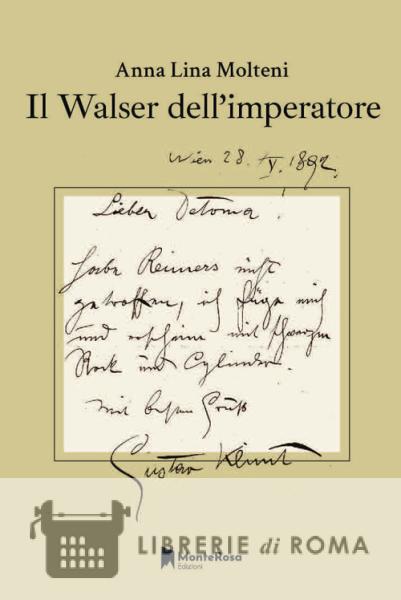 Anna Lina Molteni
Il Walser dell'imperatore
Wien 28. V. 1892
Lieber Detoma!
Habe Reimers nicht
getroffen, ich füge mich
und erscheine mit schwarzem
Rock und Cylinder.
Mit besten Gruß
Gustav Klimt
LIBRERIE di ROMA
MonteRosa
Edizioni